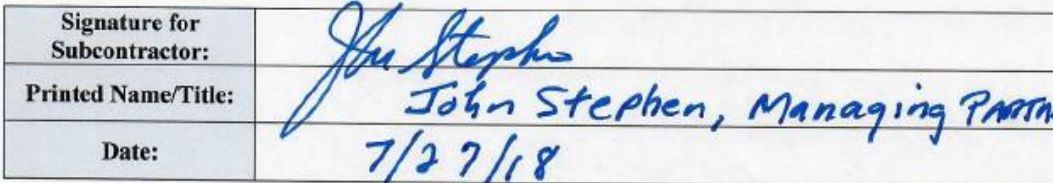 Signature for
Subcontractor:
John Stephen
Printed Name/Title: John Stephen, Managing
Date: 7/27/18